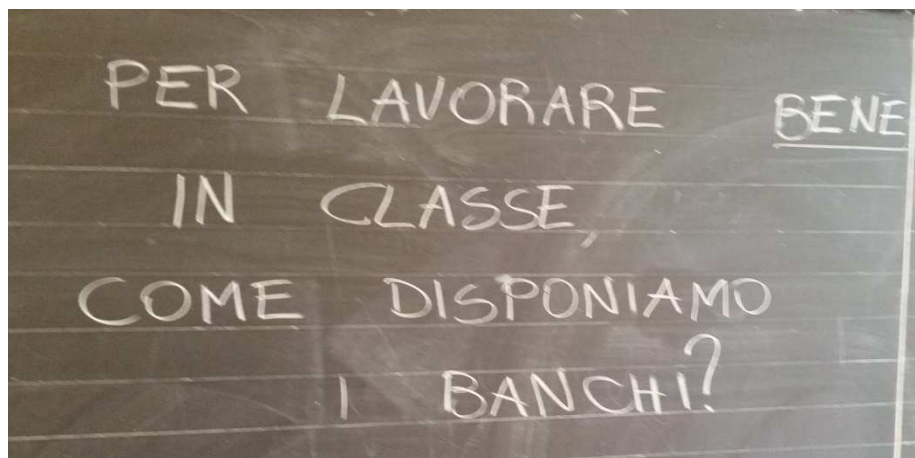 PER LAVORARE BENE
IN CLASSE,
COME DISPONIAMO
I BANCHI?